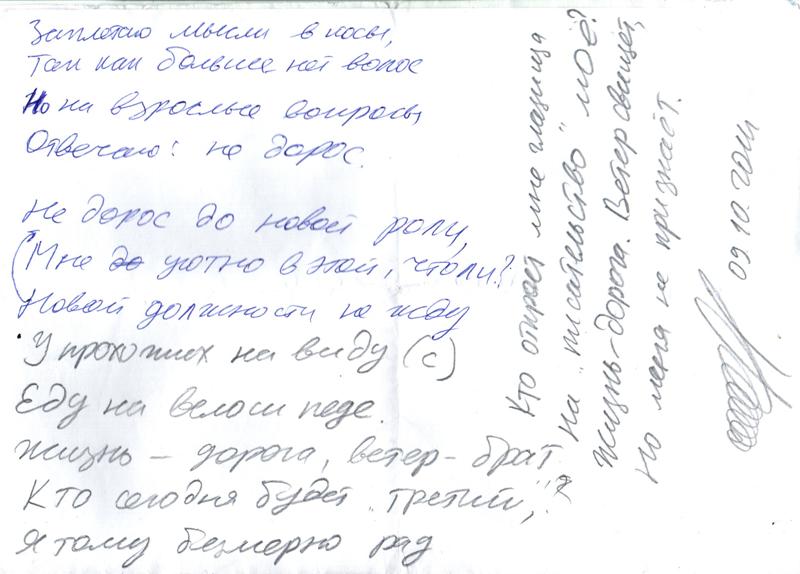 Заплетаю мысли в косы,
Так как больше нет волос
Но на взрослые вопросы
Отвечаю: не дорос.
Не дорос до новой роли,
(Мне уютно в этой, что ли?
Новой должности не жду
У прохожих на виду (с)
Еду на велосипеде.
Жизнь – дорога, ветер – брат
Кто сегодня будет "третий",?
Я тому безмерно рад
Кто откроет мне глазища
На "писательство" моё?
Жизнь – дорога. Ветер свищет,
Но меня не признаёт.
09.10.2011